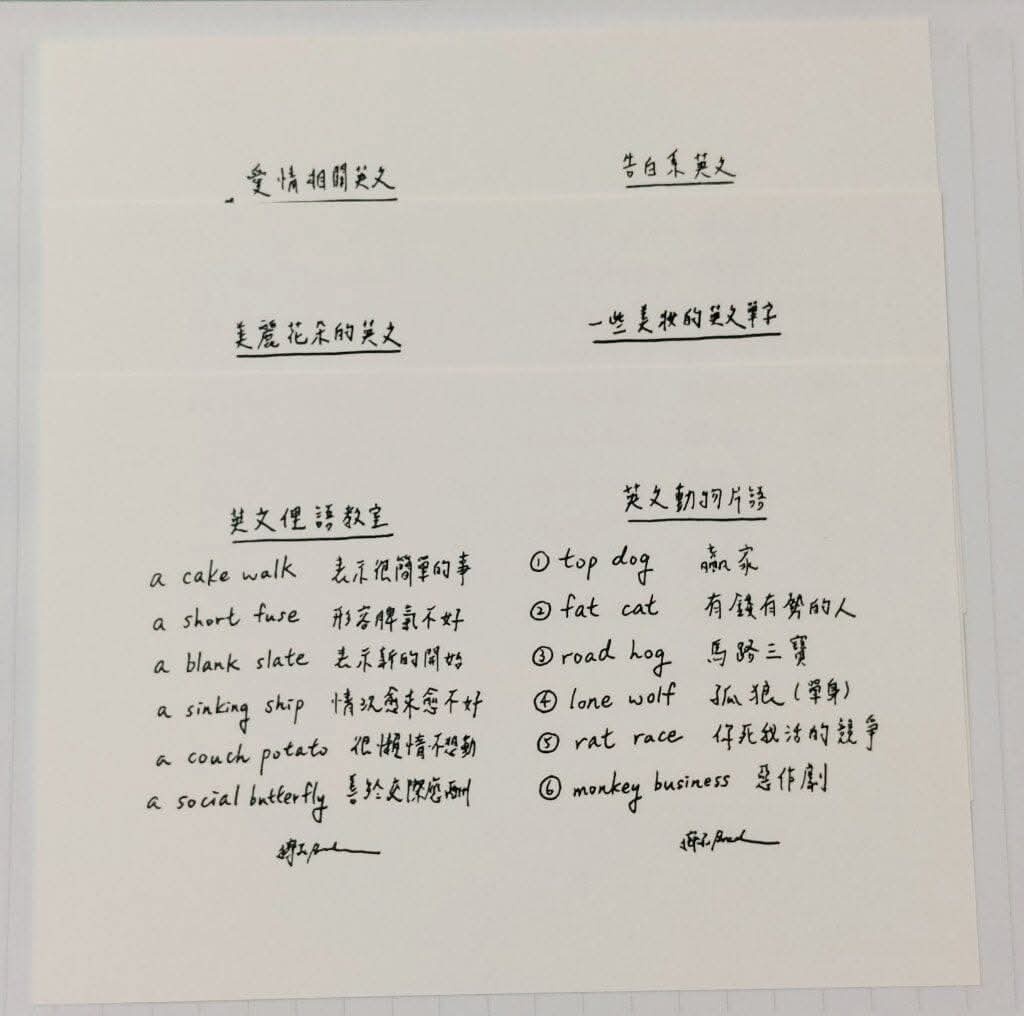 愛情相關英文
告白系英文
美麗花朵的英文
一些美妝的英文單字
英文俚語教室
a cake walk 表示很簡單的事
a short fuse 形容脾氣不好
a blank slate 表示新的開始
a sinking ship 情況愈來愈不好
a couch potato 很懶惰不想動
a social butterfly 善於交際應酬
英文動物片語
① top dog 贏家
② fat cat 有錢有勢的人
③ road hog 馬路三寶
④ lone wolf 孤狼(單身)
⑤ rat race 你死我活的競爭
⑥ monkey business 惡作劇